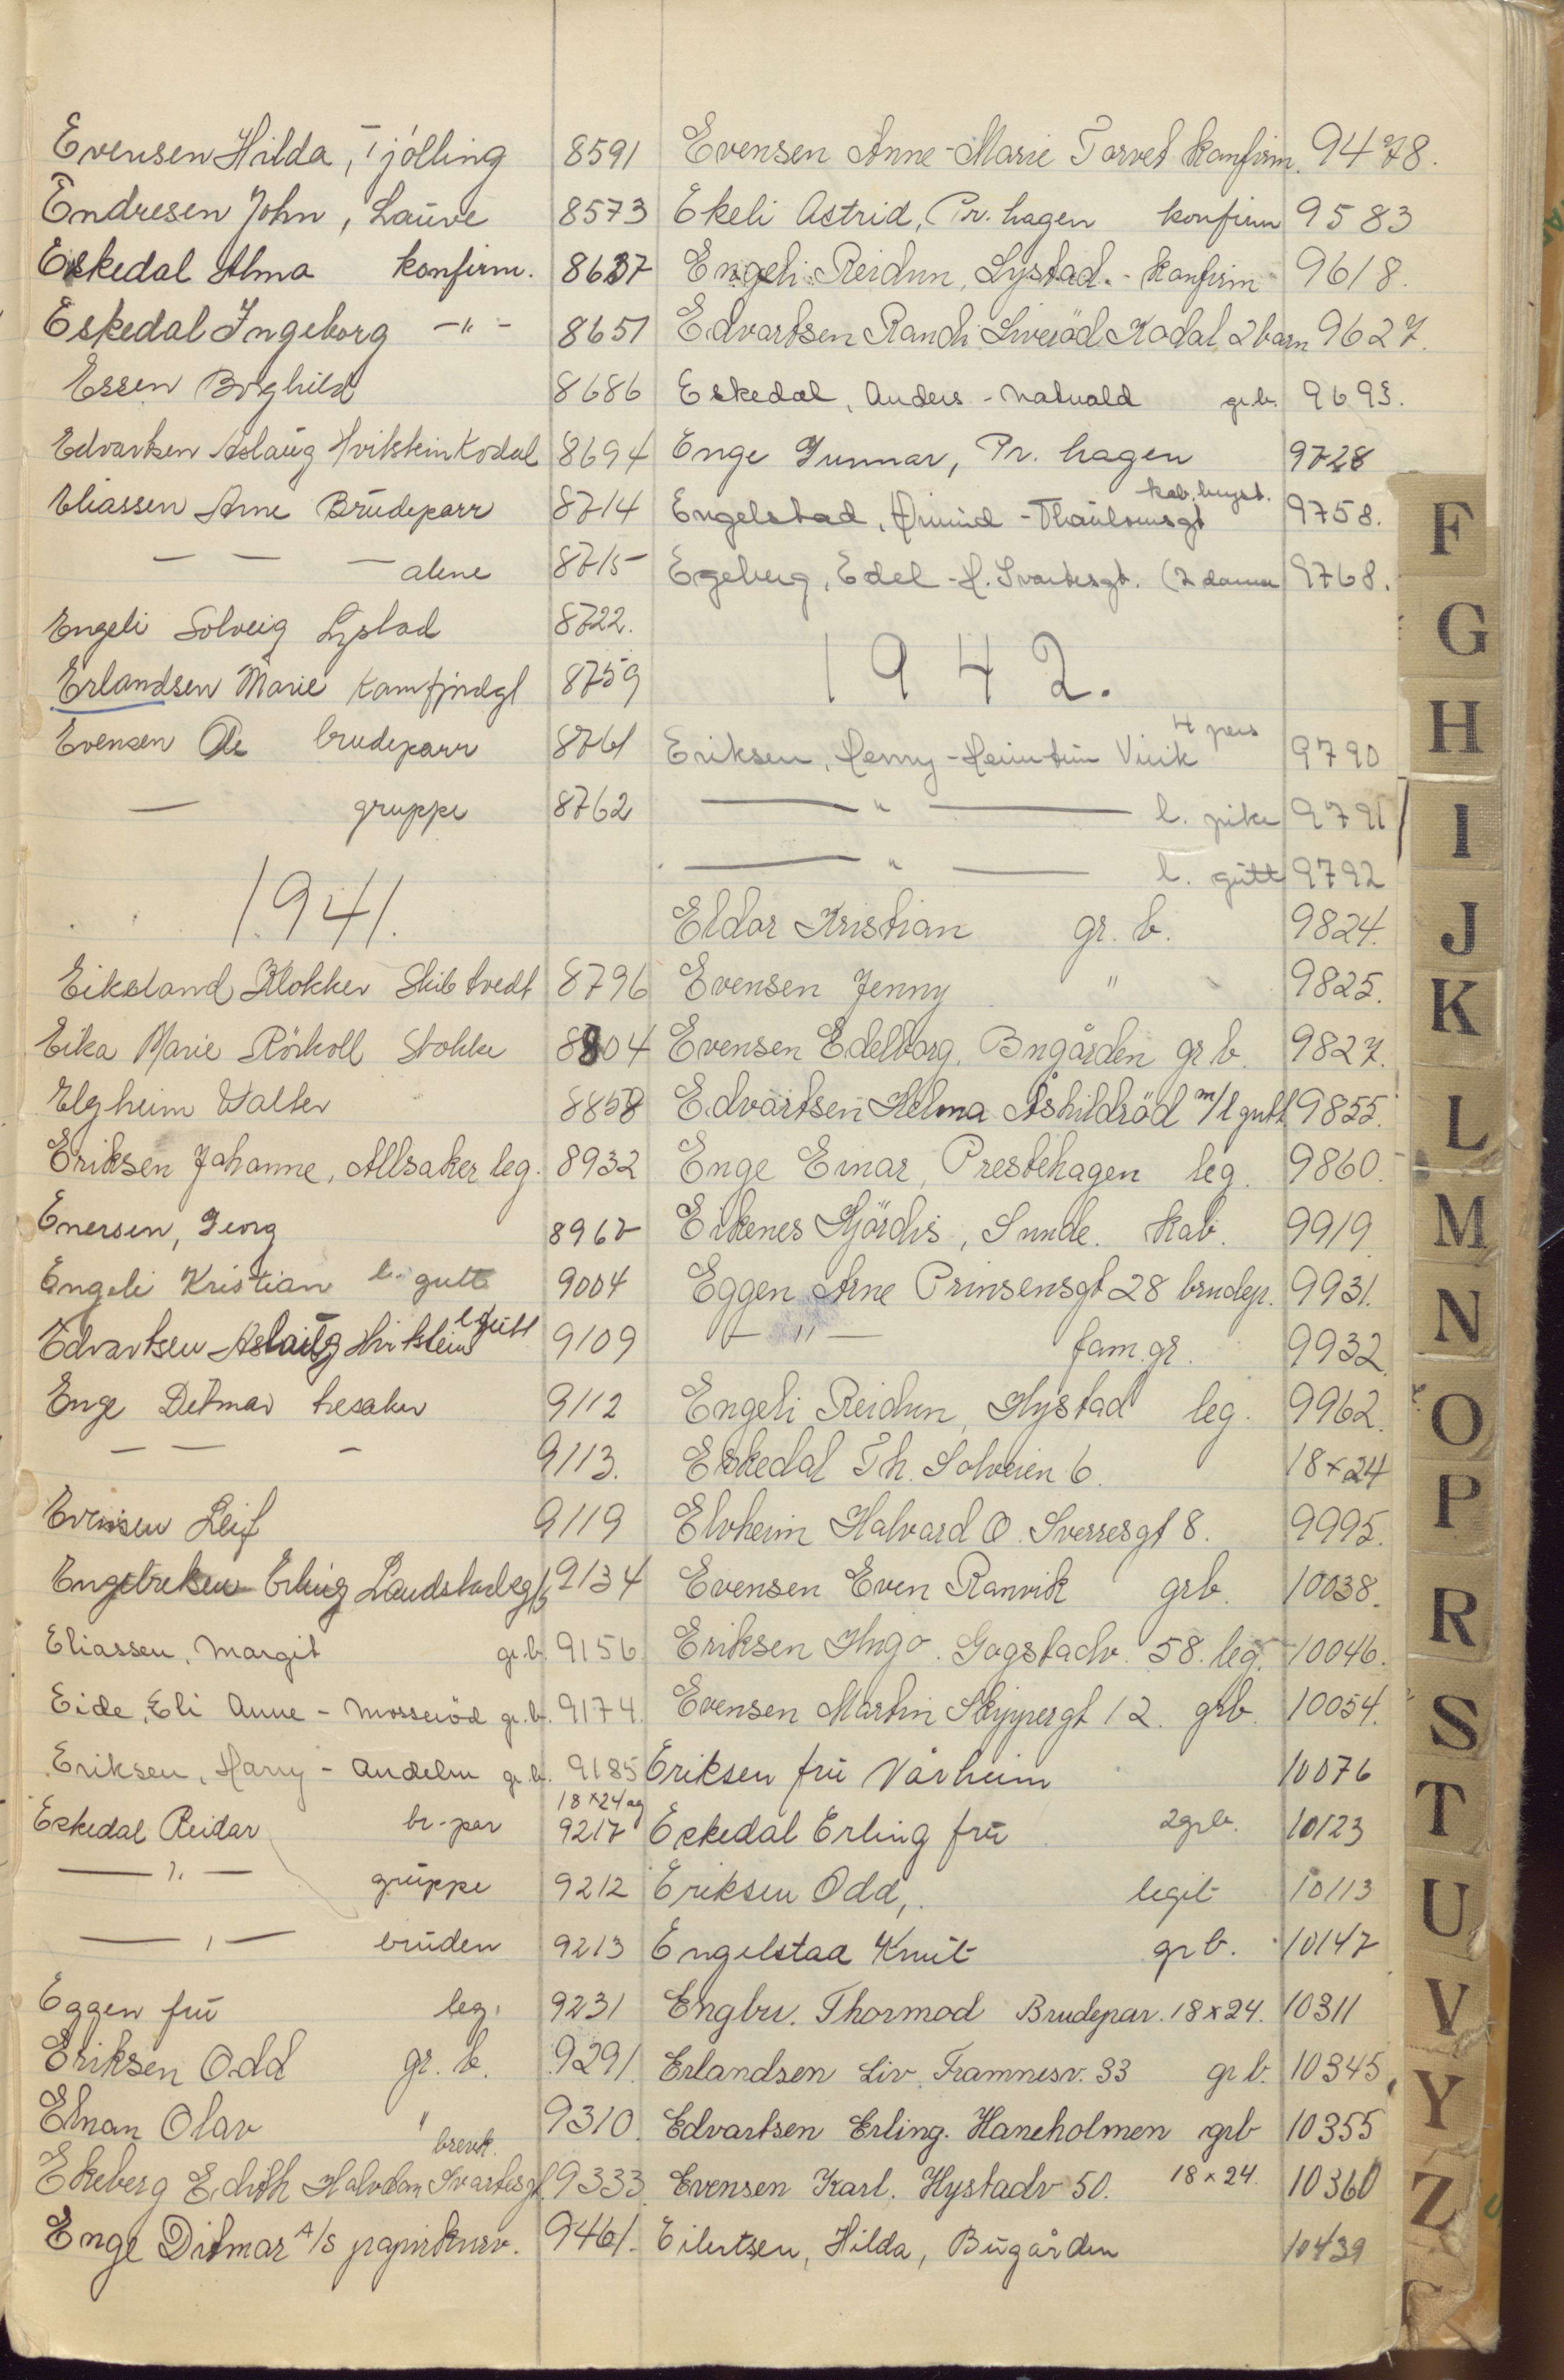 Evensen Hilda, Tjølling 8591
Endresen John, Lauve 8573
Eskedal Alma konfirm. 8637
Eskedal Ingeborg -"- 8651
Essen Borghild 8686
Edvartsen Aslaug Hvitstein Kodal 8694
Eliassen Arne Brudeparr 8714
— — — alene 8715
Engeli Solveig Lystad 8722.
Erlandsen Marie Kamfjordgt 8759
Evensen Ole brudeparr 8761
— gruppe 8762
1941.
Eikeland Klokker Skibtvedt 8796
Eika Marie Rörkoll Stokke 8804
Elgheim Walter 8858
Eriksen Johanne, Allsaker leg. 8932
Enersen, Georg 8962
Engeli Kristian l. gutt 9004
Edvartsen Aslaug Hvitstein l gutt 9109
Enge Ditmar hesaker 9112
— — — 9113.
Evensen Leif 9119
Engebretsen Erling Landstadsgt 9134
Eliassen, Margit gr.b. 9156
Eide, Eli Anne - Mosserød gr.b. 9174.
Eriksen, Harry - Andelen gr.b. 9185
18×24 ag
Eskedal Reidar br-par 9217
— " — gruppe 9212
— " — bruden 9213
Eggen fru leg. 9231
Eriksen Odd gr. b. 9291.
Elnan Olav " 9310.
brevk.
Ekeberg Edith Halvdan Svartesgt. 9333
Enge Ditmar A/S papirkurv. 9461.
Evensen Anne-Marie Torvet konfirm. 9478.
Ekeli Astrid, Pr. hagen konfirm 9583
Engeli Reidun, Lystad. - konfirm 9618.
Edvartsen Randi Liverød Kodal 2 barn 9627.
Eskedal, Anders - Natvald gr.b. 9693.
Enge Gunnar, Pr. hagen 9728
kab. bryst.
Engelstad, Amund - Thaulowsgt 9758.
Egeberg, Edel - H. Svartesgt. (2 damer 9768.
1942.
4 pers
Eriksen, Henny - Heimtun Virik 9790
— " — l. pike 9791
— " — l. gutt 9792
Eldor Kristian gr. b. 9824.
Evensen Jenny " 9825.
Evensen Edelborg. Bugården gr b. 9827.
Edvartsen Helma Åshildröd m/l gutt 9855.
Enge Einar, Prestehagen leg. 9860.
Eikenes Hjördis, Sunde. kab. 9919.
Eggen Arne Prinsensgt 28 brudep. 9931.
— " — fam. gr. 9932.
Engeli Reidun, Hystad leg. 9962.
Eskedal Th. Solveien 6. 18×24
Elvheim Halvard O. Sverresgt 8. 9995.
Evensen Even Ranvik grb. 10038.
Eriksen Hugo. Gogstadv. 58. leg. 10046.
Evensen Martin Skippergt 12. grb. 10054.
Eriksen fru Vårheim 10076
Eskedal Erling fru 2grb. 10123
Eriksen Odd, legit 10113
Engelstad Knut gr b. 10147
Engbu. Thormod Brudepar. 18×24. 10311
Erlandsen Liv. Framnesv. 33 gr b. 10345
Edvartsen Erling. Haneholmen grb 10355
Evensen Karl. Hystadv 50. 18×24. 10360
Eilertsen, Hilda, Bugården 10439
F
G
H
I
J
K
L
M
N
O
P
R
S
T
U
V
Y
Z